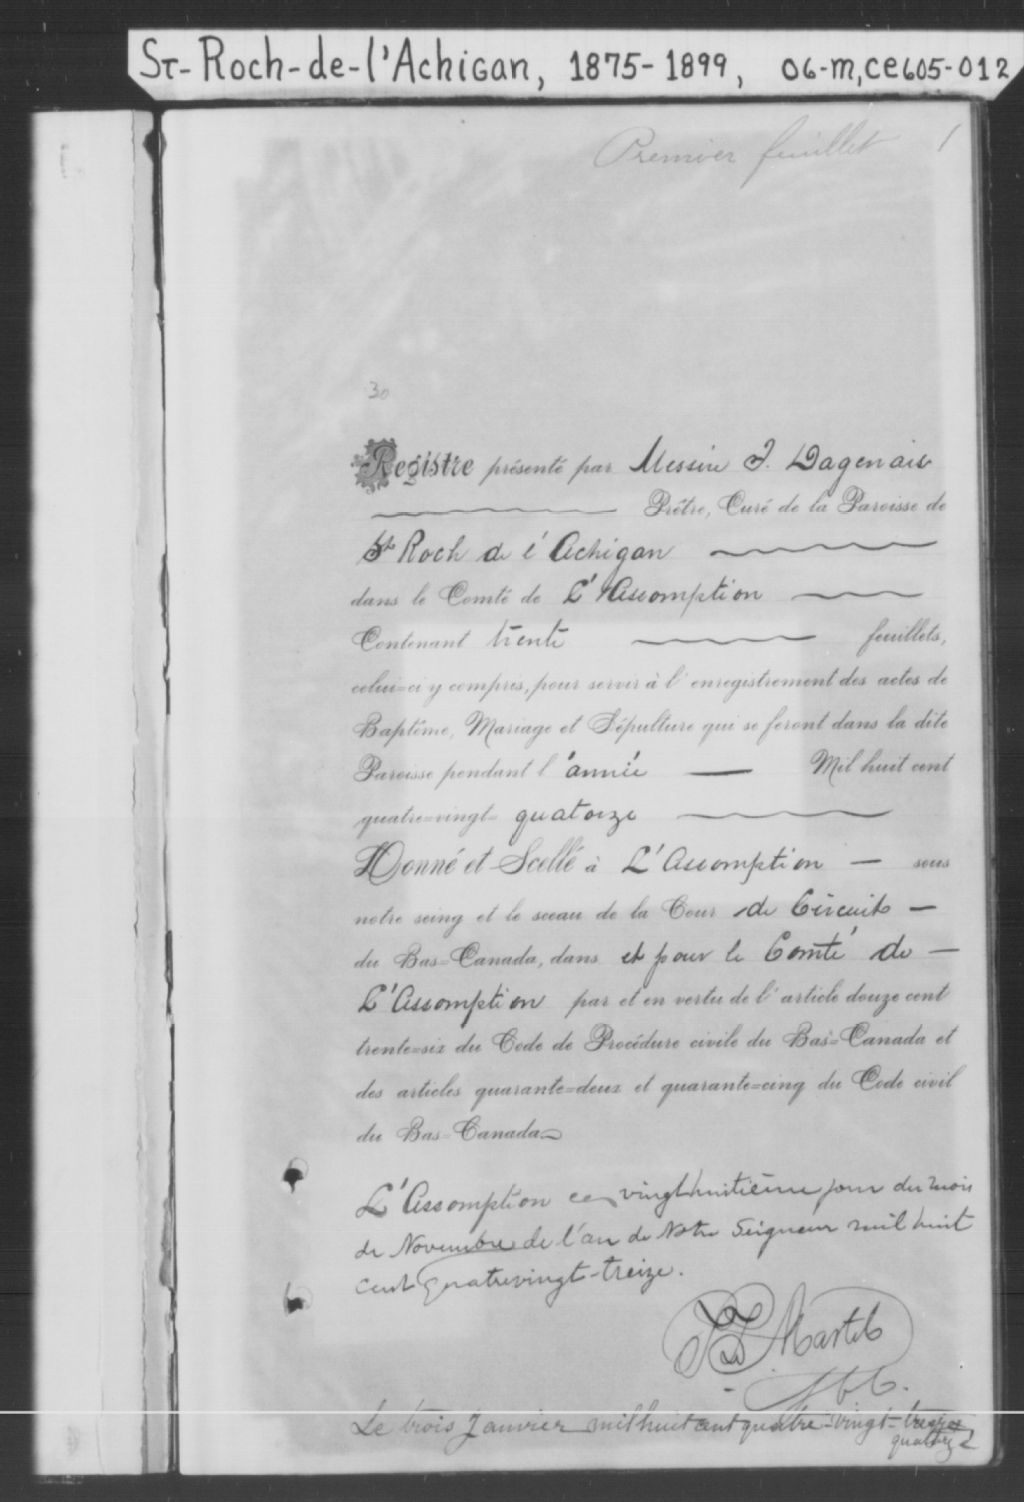 St-Roch-de-l'Achigan, 1875-1899, 06-M, CE605-012
Premier feuillet 1
30
Registre présenté par Messire J. Dagenais
Prêtre, Curé de la Paroisse de
St Roch de l'Achigan
dans le Comté de L'Assomption
Contenant trente feuillets,
celui=ci y compris, pour servir à l'enregistrement des actes de
Baptême, Mariage et Sépulture qui se feront dans la dite
Paroisse pendant l'année Mil huit cent
quatre=vingt= quatorze
Donné et Scellé à L'Assomption — sous
notre seing et le sceau de la Cour de Circuit —
du Bas=Canada, dans et pour le Comté de —
L'Assomption par et en vertu de l'article douze cent
trente=six du Code de Procédure civile du Bas=Canada et
des articles quarante=deux et quarante=cinq du Code civil
du Bas=Canada
L'Assomption ce vingthuitième jour du mois
de Novembre de l'an de Notre Seigneur mil huit
cent quatrevingt-treize.
Martel
Le trois Janvier mil huit cent quatre-vingt-treize
quatorze